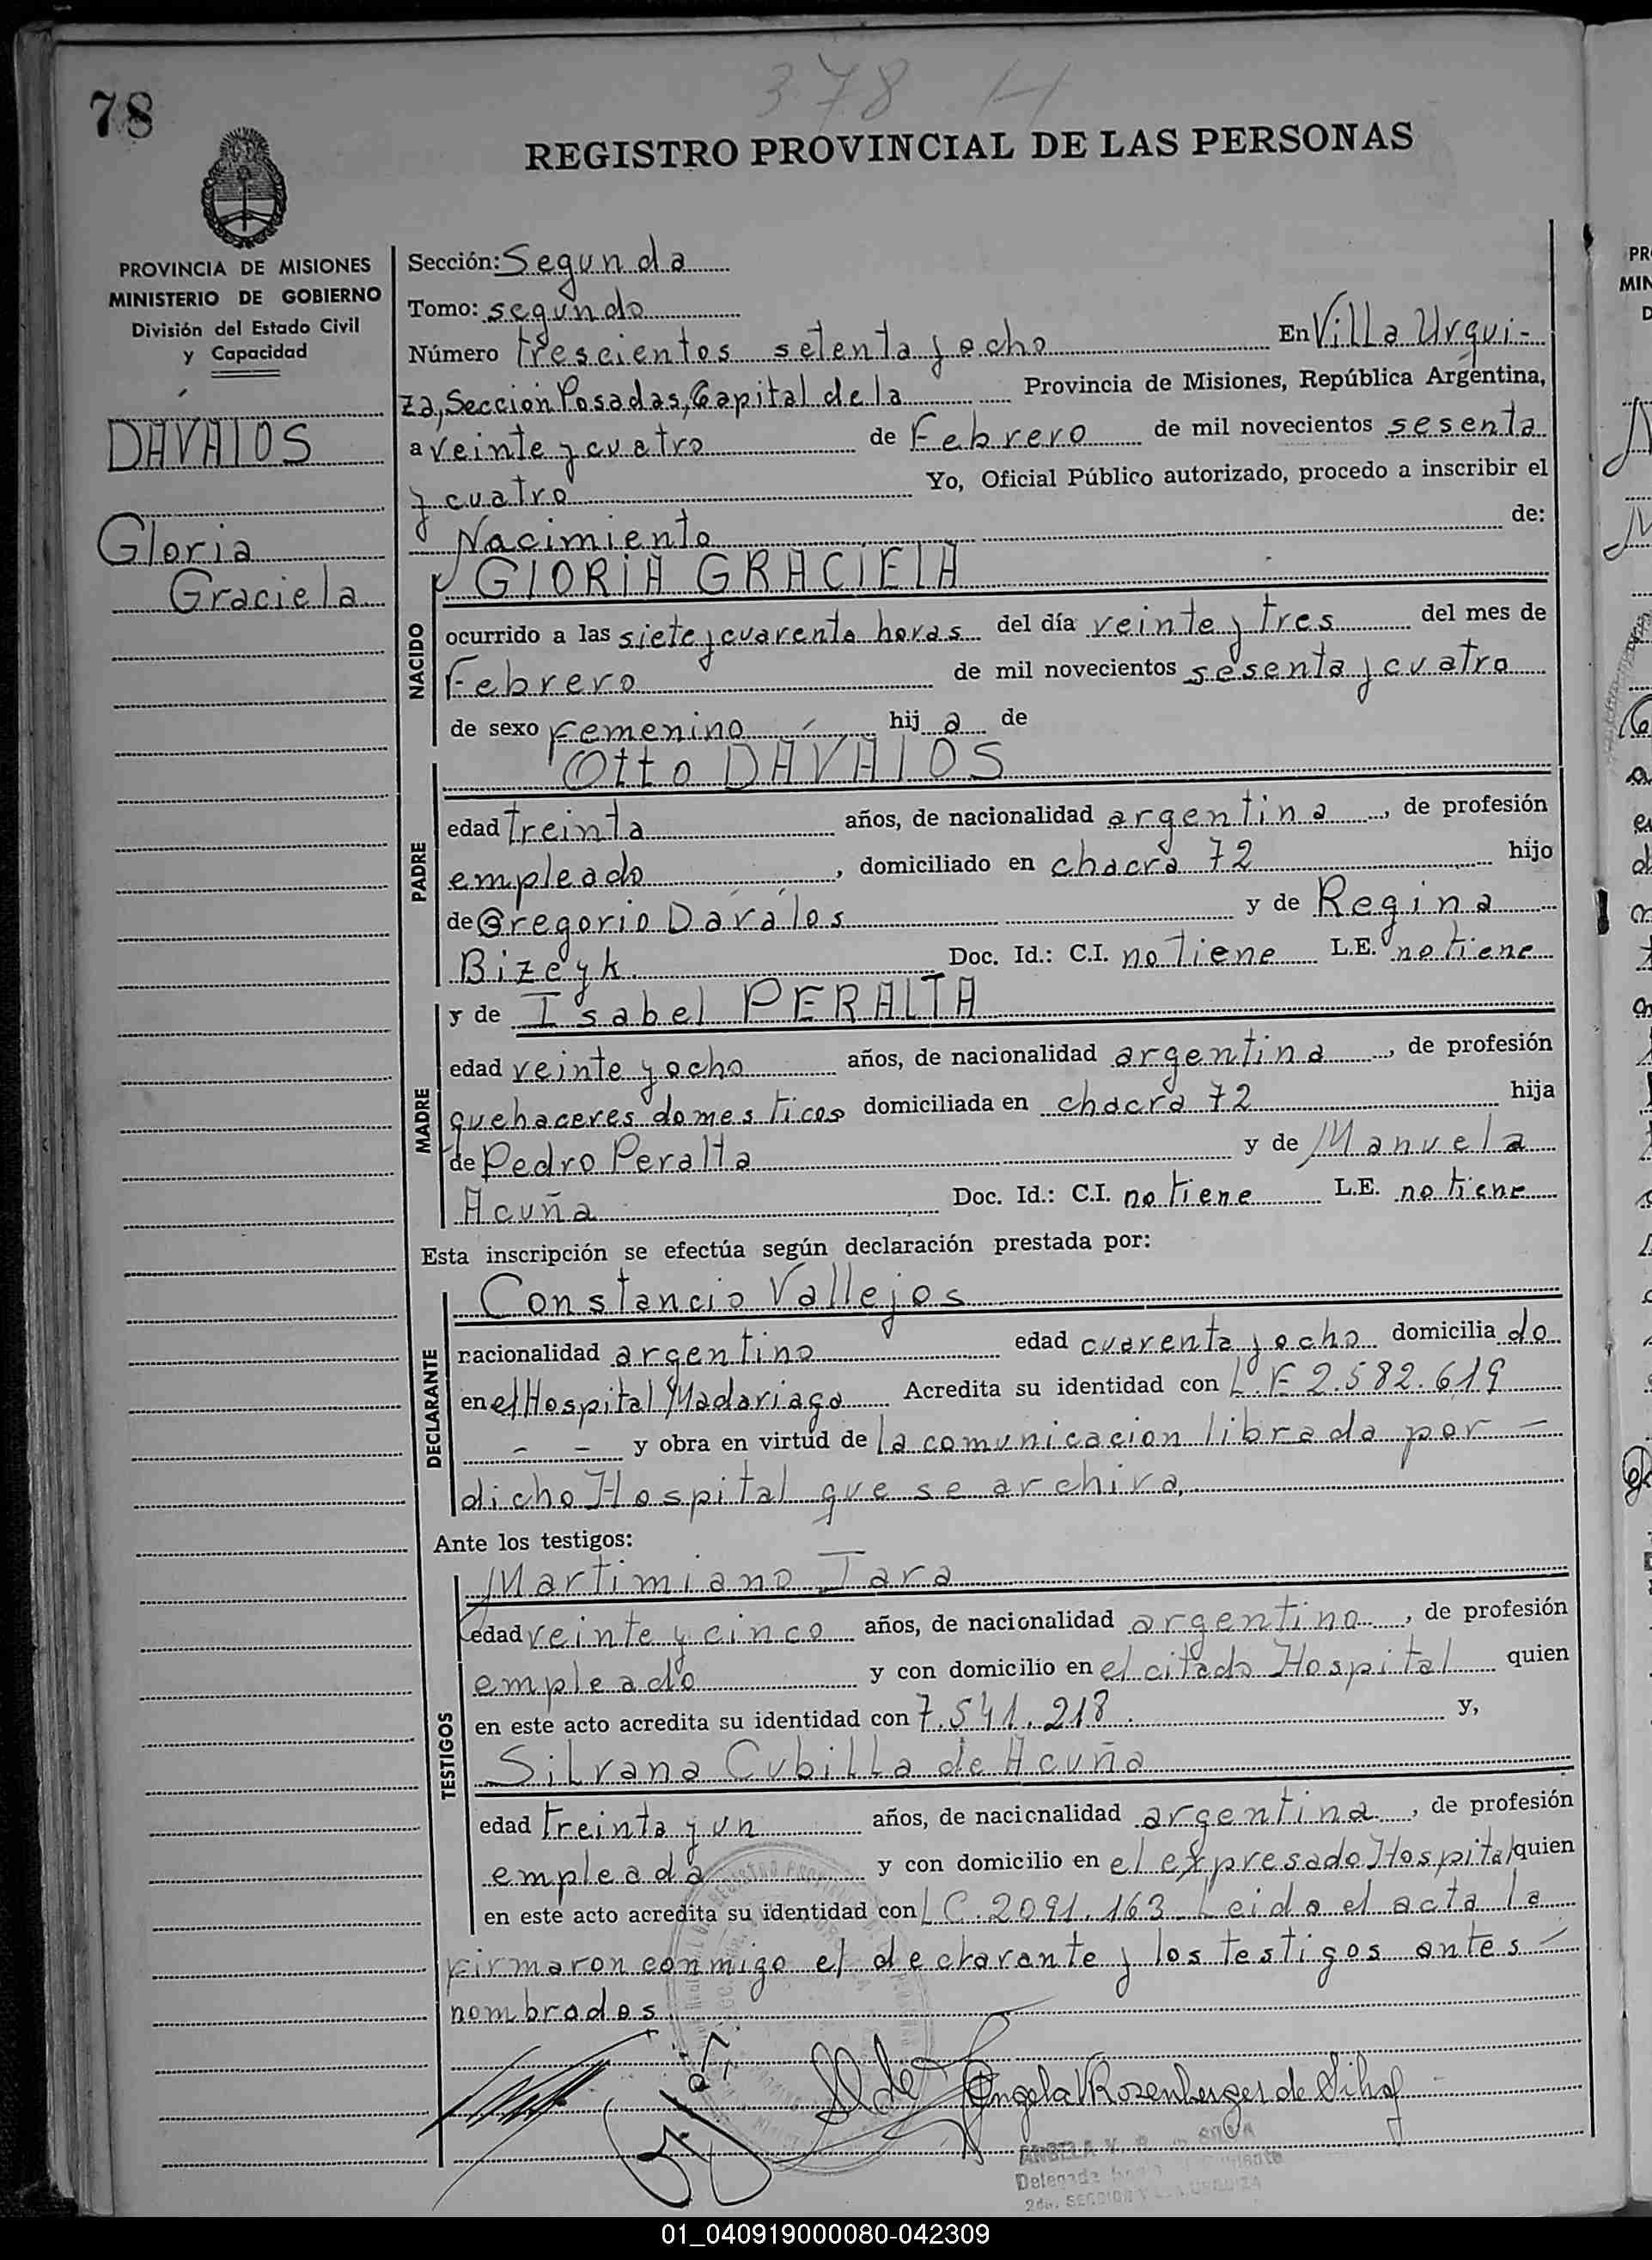 378 H
78
REGISTRO PROVINCIAL DE LAS PERSONAS
PROVINCIA DE MISIONES
MINISTERIO DE GOBIERNO
División del Estado Civil
y Capacidad
DÁVALOS
Gloria
Graciela
Sección: Segunda
Tomo: segundo
Número trescientos setenta y ocho En Villa Urqui-
za, Sección Posadas, Capital de la Provincia de Misiones, República Argentina,
a veinte y cuatro de Febrero de mil novecientos sesenta
y cuatro Yo, Oficial Público autorizado, procedo a inscribir el
Nacimiento de:
NACIDO
GLORIA GRACIELA
ocurrido a las siete y cuarenta horas del día veinte y tres del mes de
Febrero de mil novecientos sesenta y cuatro
de sexo Femenino hij a de
PADRE
Otto DÁVALOS
edad treinta años, de nacionalidad argentina, de profesión
empleado, domiciliado en chacra 72 hijo
de Gregorio Dávalos y de Regina
Bizeyk Doc. Id.: C.I. no tiene L.E. no tiene
MADRE
y de Isabel PERALTA
edad veinte y ocho años, de nacionalidad argentina, de profesión
quehaceres domesticos domiciliada en chacra 72 hija
de Pedro Peralta y de Manuela
Acuña Doc. Id.: C.I. no tiene L.E. no tiene
Esta inscripción se efectúa según declaración prestada por:
DECLARANTE
Constancio Vallejos
nacionalidad argentino edad cuarenta y ocho domicilia do
en el Hospital Madariaga Acredita su identidad con L.E 2.582.619
- - y obra en virtud de la comunicacion librada por -
dicho Hospital que se archiva,
Ante los testigos:
TESTIGOS
Martimiano Jara
edad veinte y cinco años, de nacionalidad argentino, de profesión
empleado y con domicilio en el citado Hospital quien
en este acto acredita su identidad con 7.541.218. y,
Silvana Cubilla de Acuña
edad treinta y un años, de nacionalidad argentina, de profesión
empleada y con domicilio en el expresado Hospital quien
en este acto acredita su identidad con LC.2091.163 Leido el acta la
firmaron conmigo el declarante y los testigos antes -
nombrados
Angela V Rozenberger de Silva
ANGELA V.
Delegada
2da. SECCION VILLA URQUIZA
01_040919000080-042309